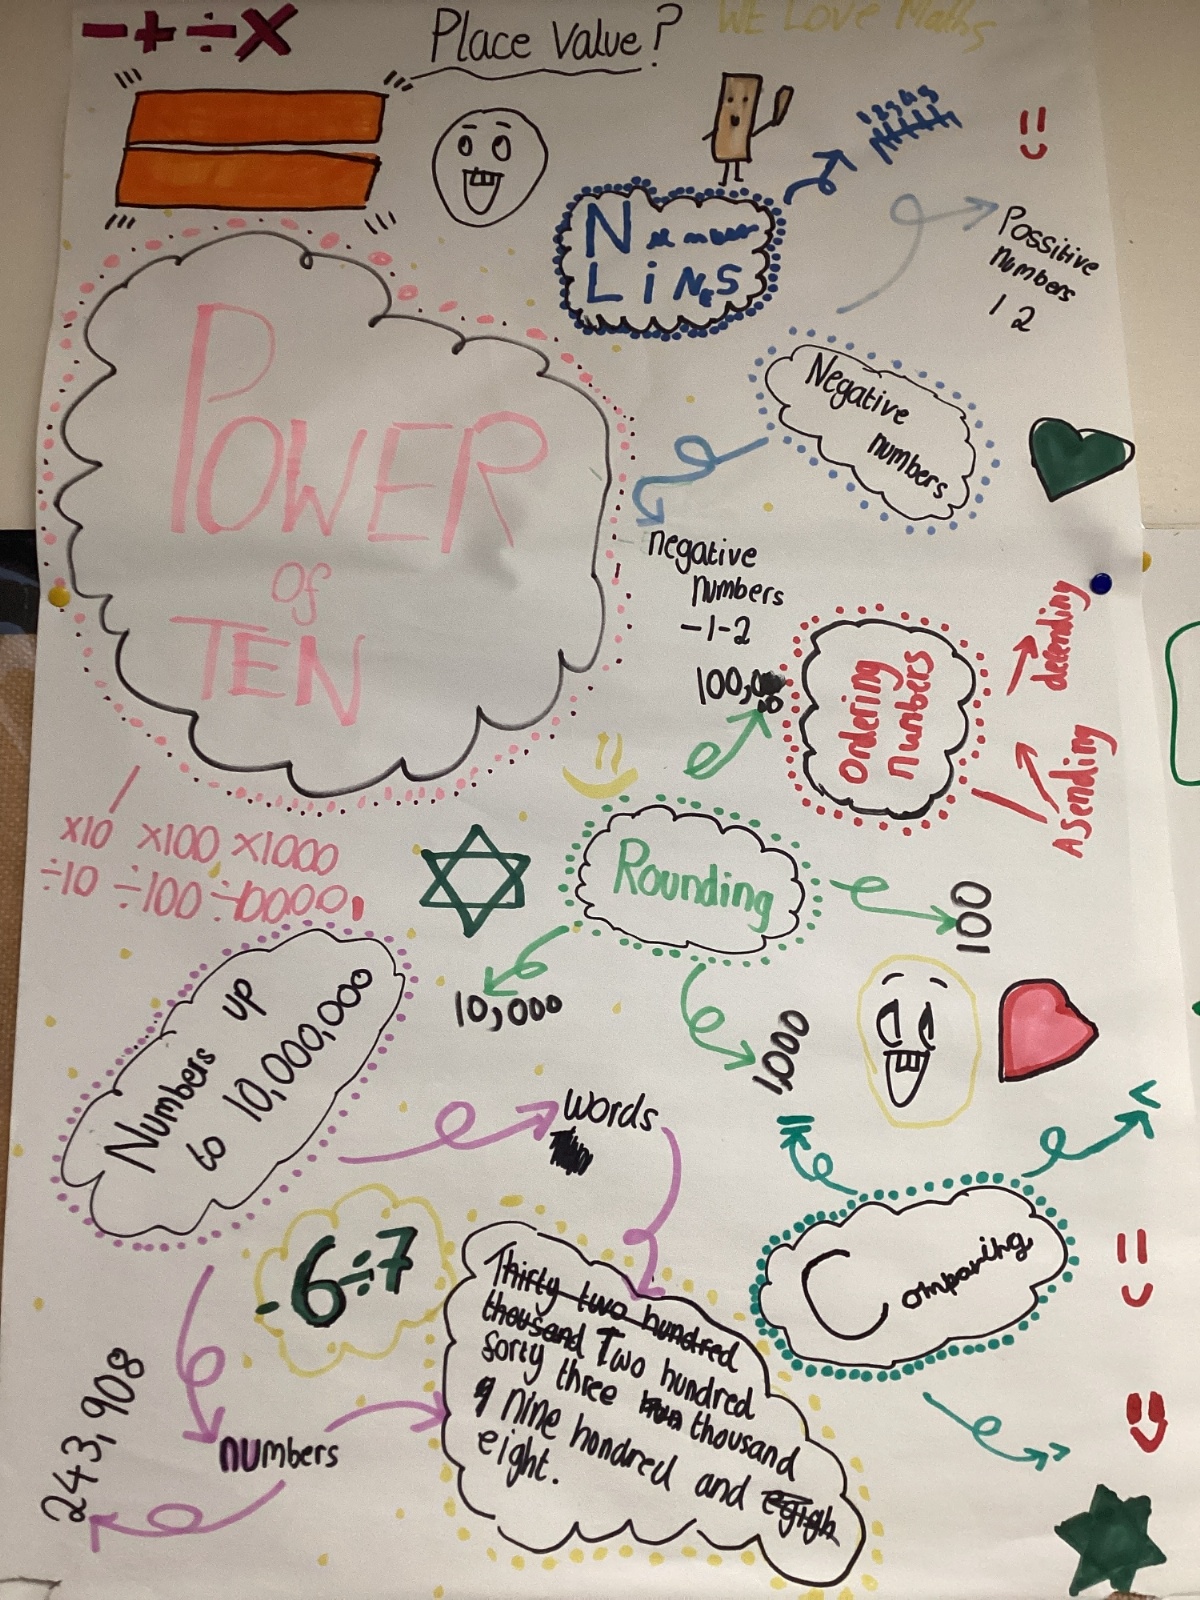 - + ÷ ×
Place Value?
WE LOVE Maths
Number
LiNES
Possitive
numbers
1 2
Negative
numbers
negative
numbers
-1-2
POWER
of
TEN
×10 ×100 ×1000
÷10 ÷100 ÷10000
Ordering
numbers
decending
Asending
100,000
Rounding
100
10,000
1,000
Numbers up
to 10,000,000
words
-6÷7
Comparing
=
<
>
Thirty two hundred
thousand Two hundred
forty three thousand
nine hundred and eigh
eight.
numbers
243,908